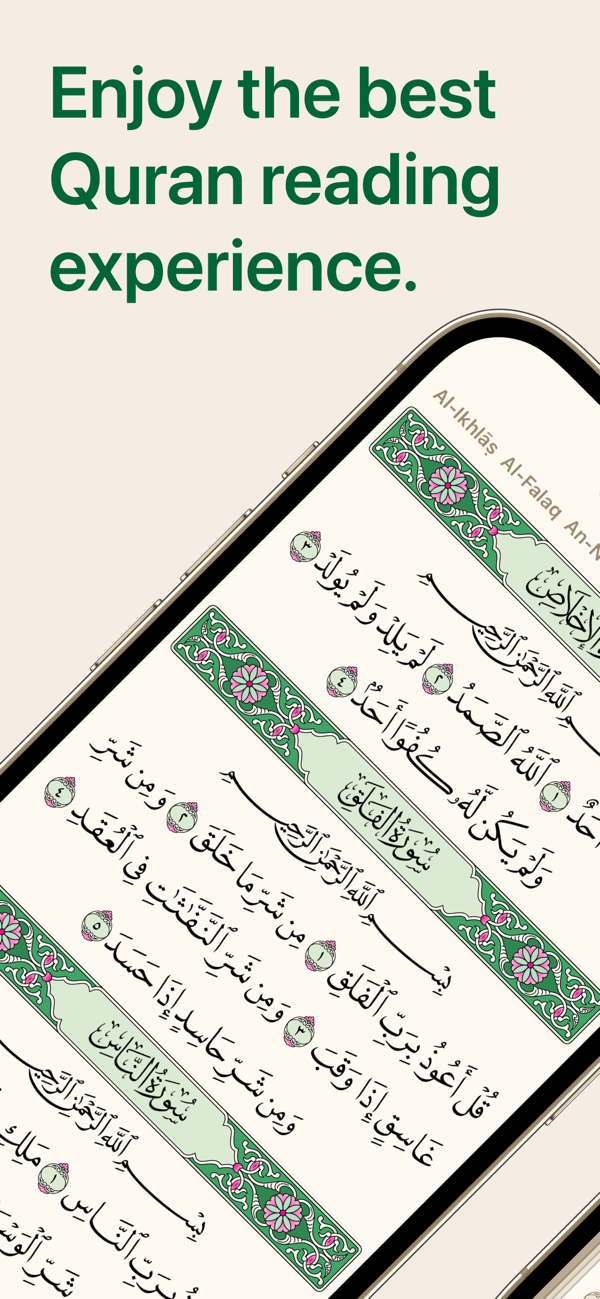 Enjoy the best
Quran reading
experience.
Al-Ikhlāṣ Al-Falaq An-N
الإِخْلَاصِ
ٱللَّهِ ٱلرَّحْمَٰنِ ٱلرَّحِيمِ
أَحَدٌ ١ ٱللَّهُ ٱلصَّمَدُ ٢ لَمْ يَلِدْ وَلَمْ يُولَدْ ٣
وَلَمْ يَكُن لَّهُۥ كُفُوًا أَحَدٌۢ ٤
سُورَةُ الفَلَقِ
بِسْمِ ٱللَّهِ ٱلرَّحْمَٰنِ ٱلرَّحِيمِ
قُلْ أَعُوذُ بِرَبِّ ٱلْفَلَقِ ١ مِن شَرِّ مَا خَلَقَ ٢ وَمِن شَرِّ
غَاسِقٍ إِذَا وَقَبَ ٣ وَمِن شَرِّ ٱلنَّفَّٰثَٰتِ فِى ٱلْعُقَدِ ٤
وَمِن شَرِّ حَاسِدٍ إِذَا حَسَدَ ٥
سُورَةُ النَّاسِ
بِسْمِ ٱللَّهِ ٱلرَّحْمَٰنِ ٱلرَّحِيمِ
بِرَبِّ ٱلنَّاسِ ١ مَلِكِ
شَرِّ ٱلْوَس